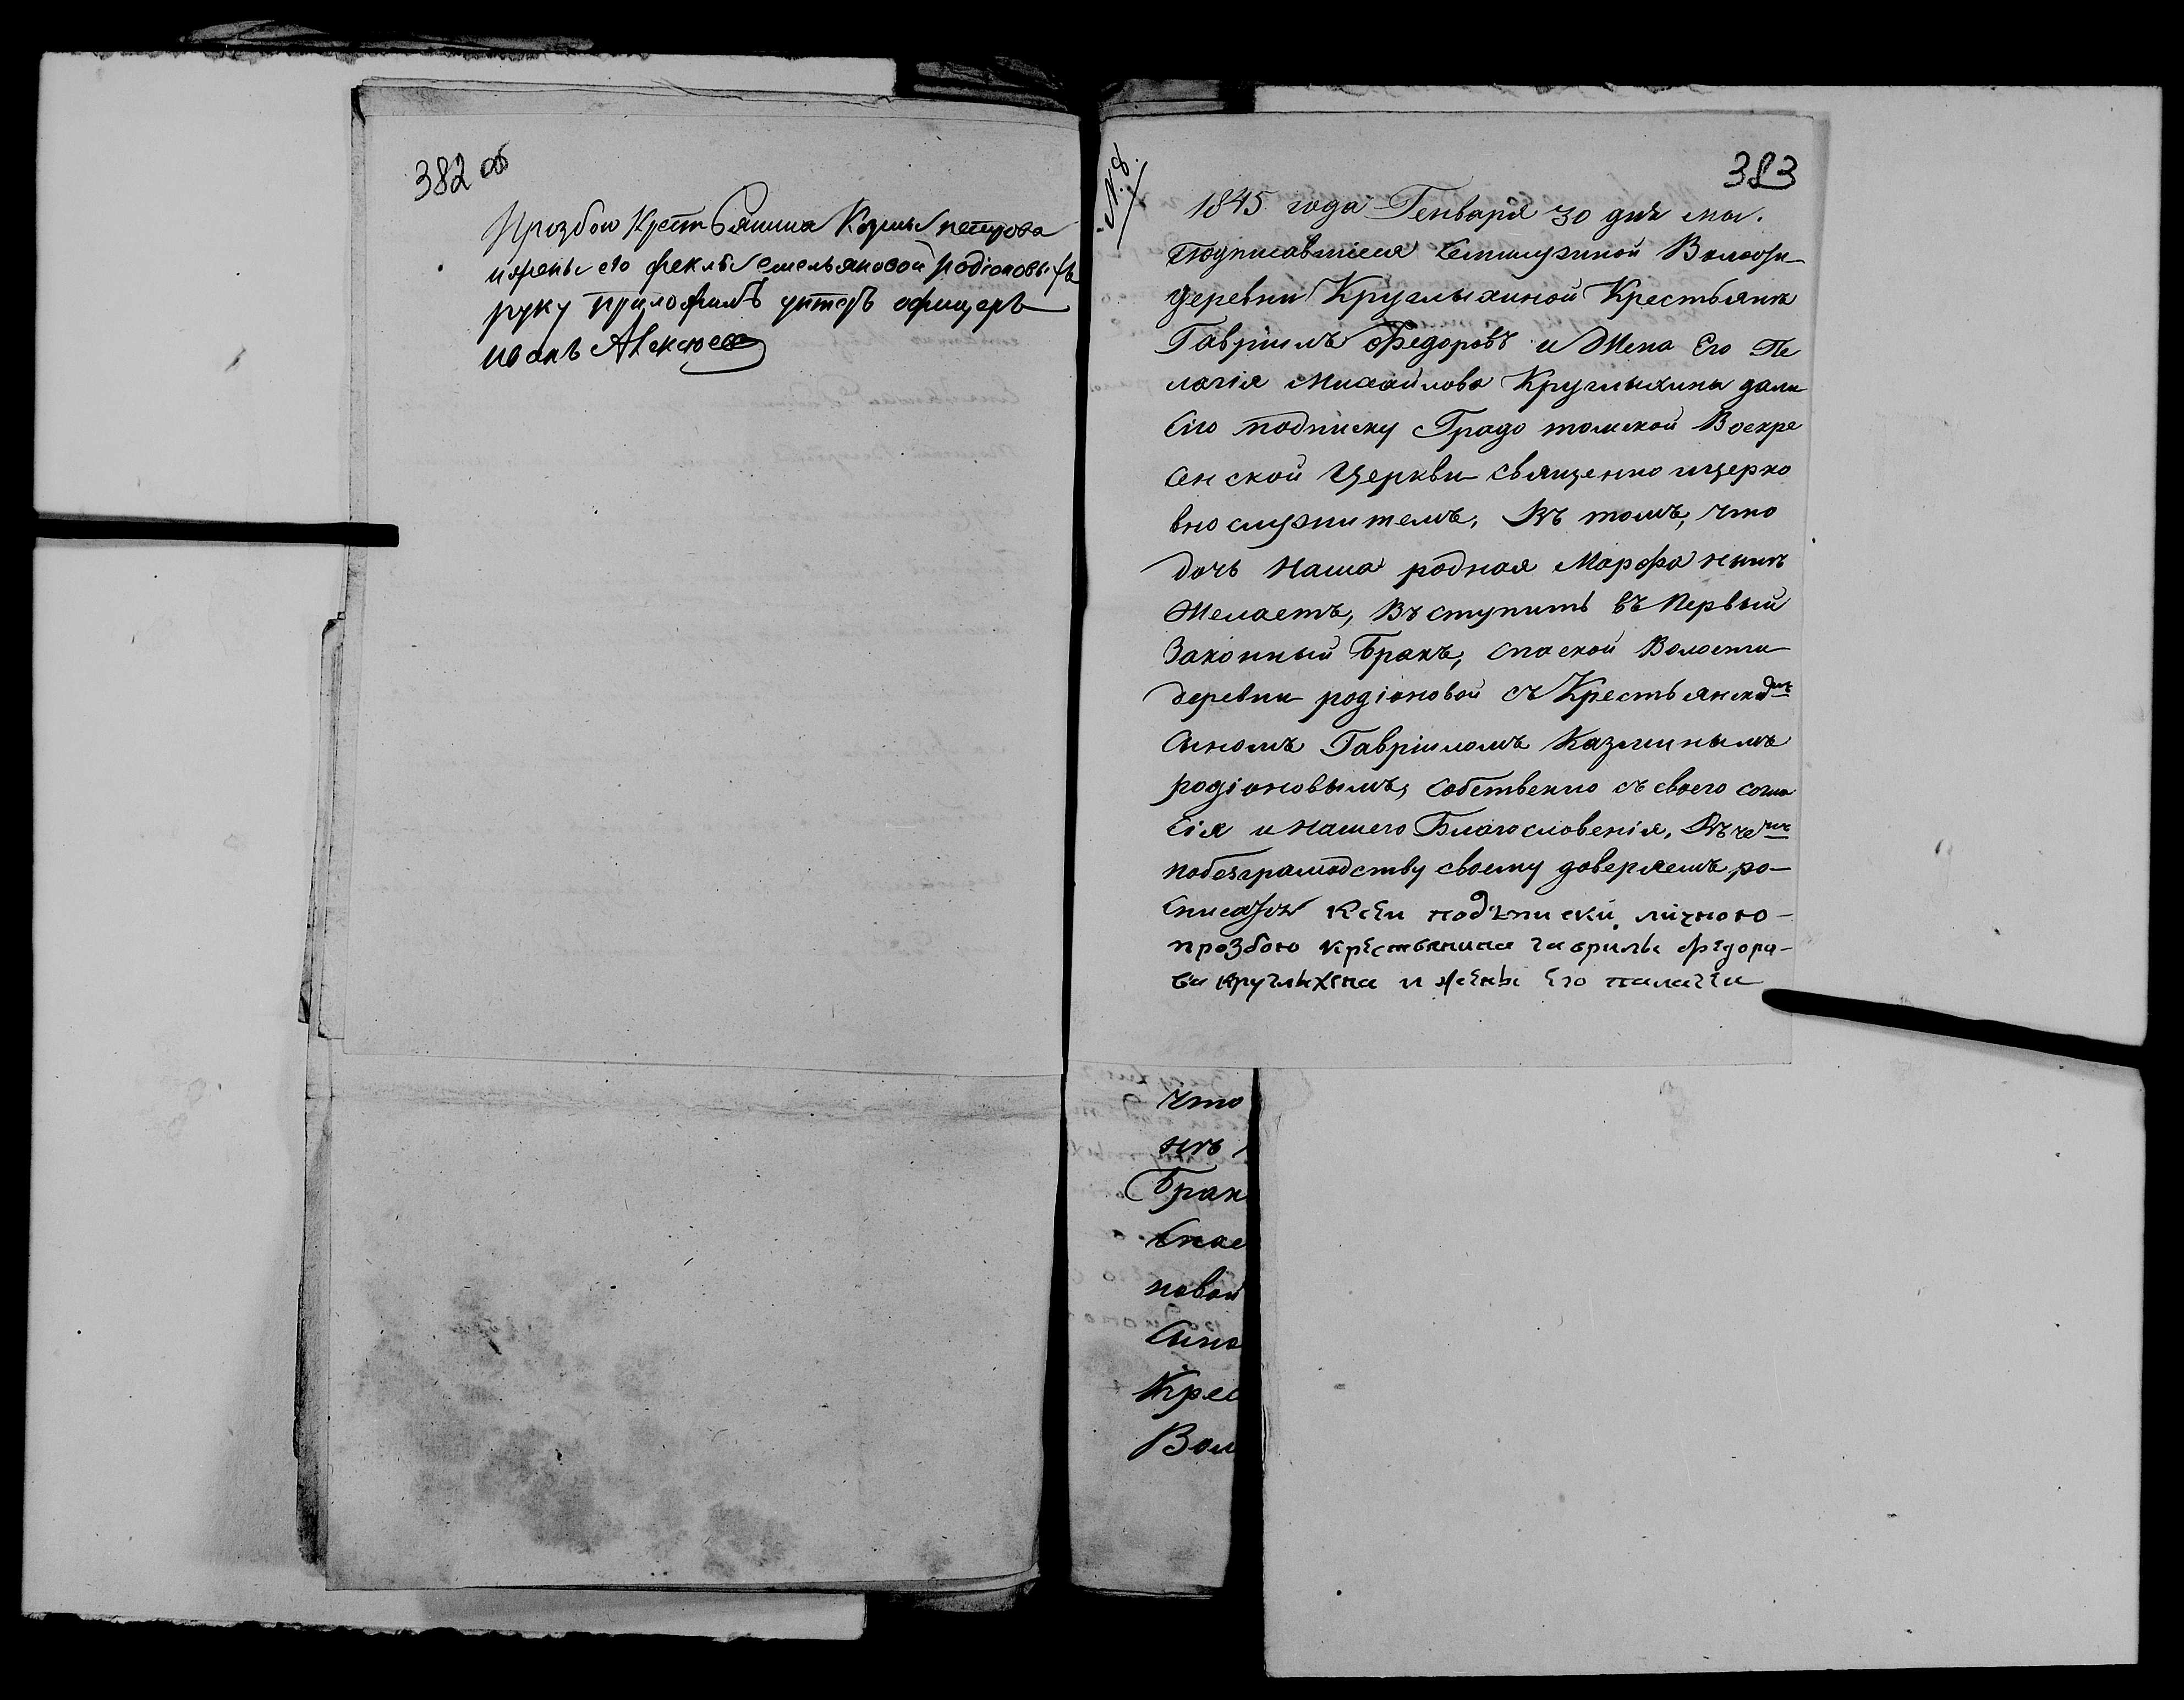 382 об
Прозбою Крестьянина Козмы петрова
и жены его феклы емельяновой родіоновыхъ
руку приложилъ унтеръ офицеръ
иванъ Алексеев
№ 8.
383
1845 года Генваря 30 дня мы.
подписавшіеся Семилужиной Волости
деревни Круглыхиной Крестьянинъ
Гавріилъ Федоровъ и Жена Его Пе
лагія Михайлова Круглыхины дали
Сію подписку Градо томской Воскре
сенской Церкви священно ицерко
вно служителямъ, Въ томъ, что
дочь Наша родная Марфа нынѣ
Желаетъ, Въступить въ Первый
Законный Бракъ, спаской Волости
деревни родіоновой съ Крестьянскимъ
Сыномъ Гавріиломъ Казминымъ
родіоновымъ, собственно съ своего согла
сія и Нашего Благословенія, Въ чемъ
побезграмодству своему доверяемъ ро-
списатся Ксеи подъписки личною-
прозбою крестьянина гаврилы федора-
ва круглыхена и жены Его палагеи
что
нѣ
Брак
Спас
новой
Сыно
Крес
Вол